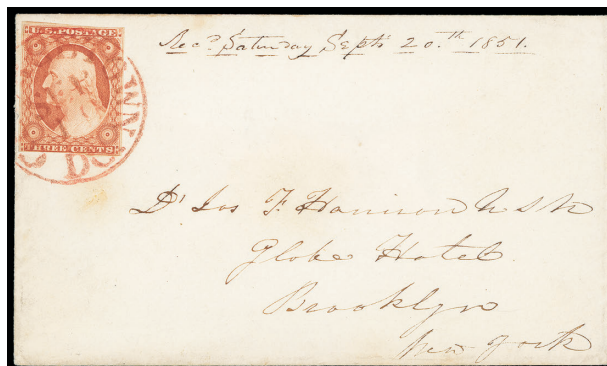 U.S. POSTAGE
THREE CENTS
Rec.d Saturday Sept. 20.th 1851.
Dr Jos F. Harrison U S N
Globe Hotel.
Brooklyn
New York